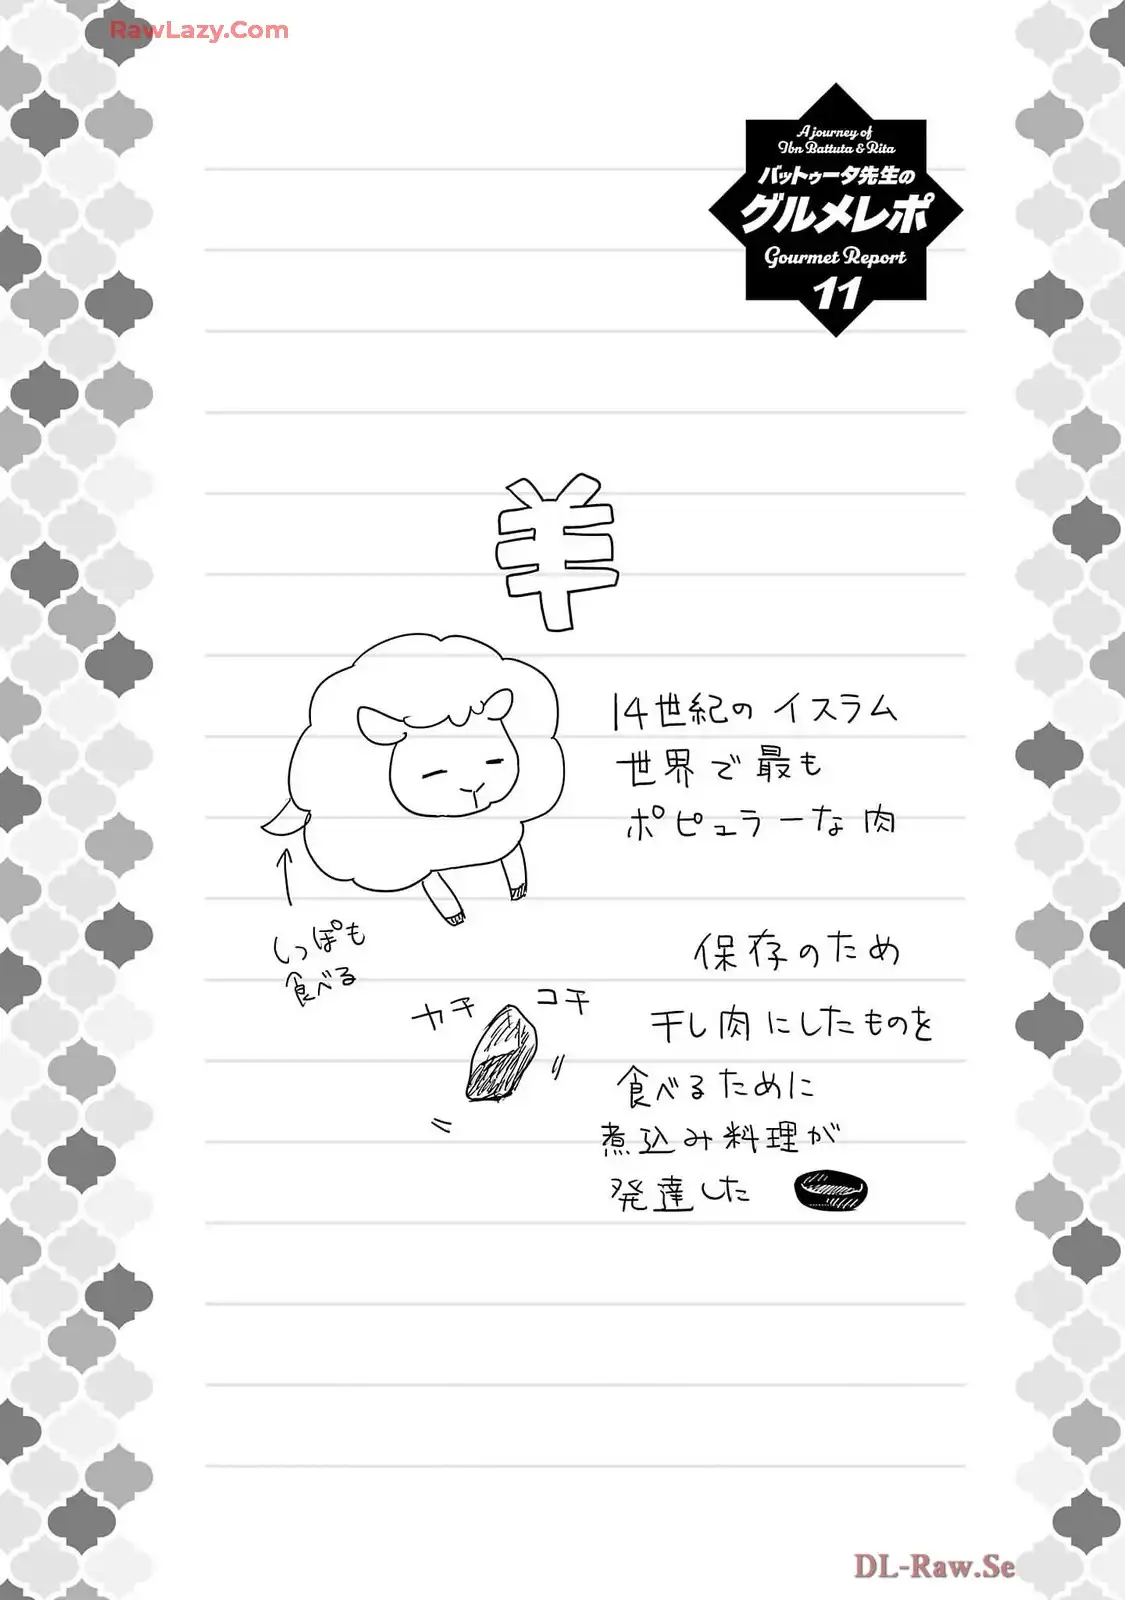 RawLazy.Com
A journey of
Ibn Battuta & Rita
バットゥータ先生の
グルメレポ
Gourmet Report
11
羊
14世紀のイスラム
世界で最も
ポピュラーな肉
しっぽも
食べる
保存のため
干し肉にしたものを
食べるために
煮込み料理が
発達した
カチ
コチ
DL-Raw.Se